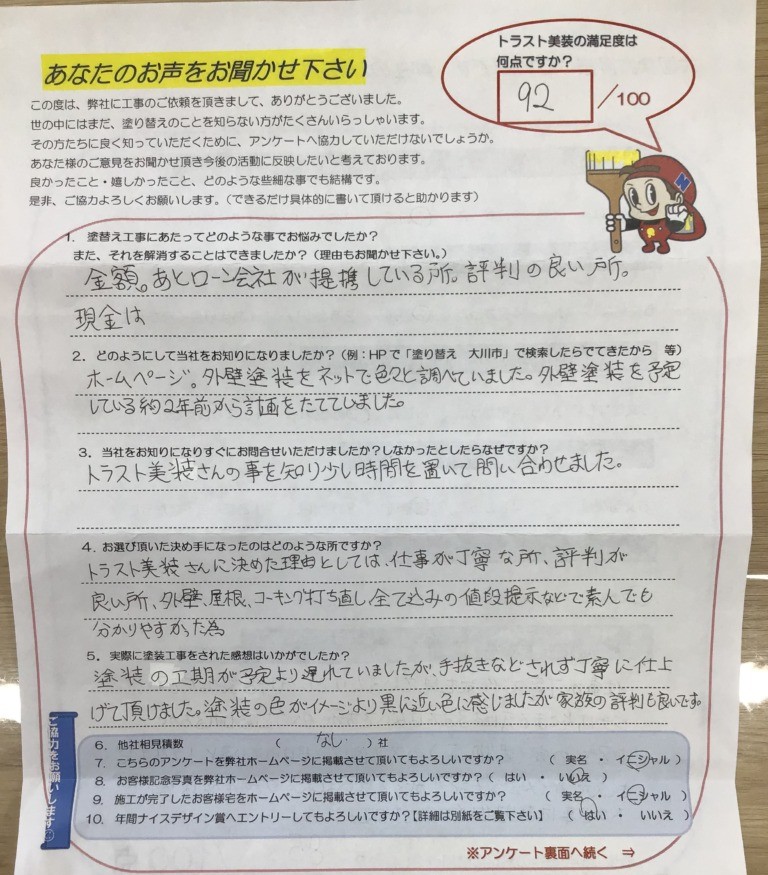 あなたのお声をお聞かせ下さい
トラスト美装の満足度は
何点ですか?
92 /100
この度は、弊社に工事のご依頼を頂きまして、ありがとうございました。
世の中にはまだ、塗り替えのことを知らない方がたくさんいらっしゃいます。
その方たちに良く知っていただくために、アンケートへ協力していただけないでしょうか。
あなた様のご意見をお聞かせ頂き今後の活動に反映したいと考えております。
良かったこと・嬉しかったこと、どのような些細な事でも結構です。
是非、ご協力よろしくお願いします。(できるだけ具体的に書いて頂けると助かります)
1. 塗替え工事にあたってどのような事でお悩みでしたか?
また、それを解消することはできましたか?(理由もお聞かせ下さい。)
金額。あとローン会社が提携している所。評判の良い所。
現金は
2. どのようにして当社をお知りになりましたか?(例:HPで「塗り替え 大川市」で検索したらでてきたから 等)
ホームページ。外壁塗装をネットで色々と調べていました。外壁塗装を予定
している約2年前から計画をたててしました。
3. 当社をお知りになりすぐにお問合せいただけましたか?しなかったとしたらなぜですか?
トラスト美装さんの事を知り少し時間を置いて問い合わせました。
4. お選び頂いた決め手になったのはどのような所ですか?
トラスト美装さんに決めた理由としては、仕事が丁寧な所、評判が
良い所、外壁、屋根、コーキング打ち直し、全て込みの値段提示などで素人でも
分かりやすかった為
5. 実際に塗装工事をされた感想はいかがでしたか?
塗装の工期が予定より遅れていましたが、手抜きなどされず丁寧に仕上
げて頂けました。塗装の色がイメージより黒に近い色に感じましたが家族の評判も良いです。
6. 他社相見積数 ( なし )社
7. こちらのアンケートを弊社ホームページに掲載させて頂いてもよろしいですか? ( 実名 ・ イニシャル )
8. お客様記念写真を弊社ホームページに掲載させて頂いてもよろしいですか? ( はい ・ いいえ )
9. 施工が完了したお客様宅をホームページに掲載させて頂いてもよろしいですか? ( 実名 ・ イニシャル )
10. 年間ナイスデザイン賞へエントリーしてもよろしいですか?【詳細は別紙をご覧下さい】 ( はい ・ いいえ )
ご協力をお願いします
※アンケート裏面へ続く ⇒